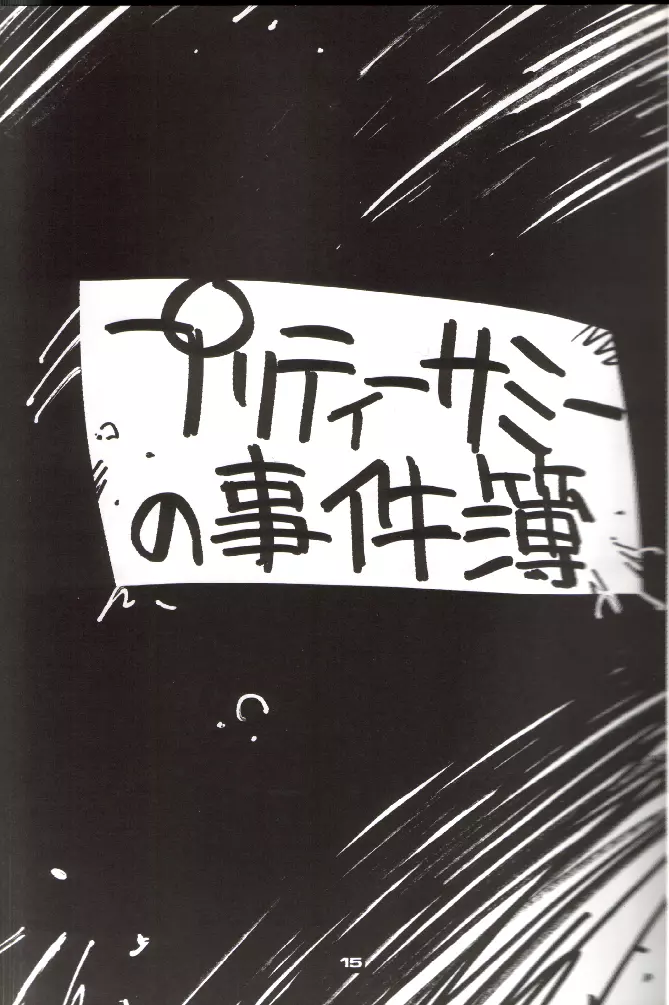 プリティーサミー
の事件簿
15